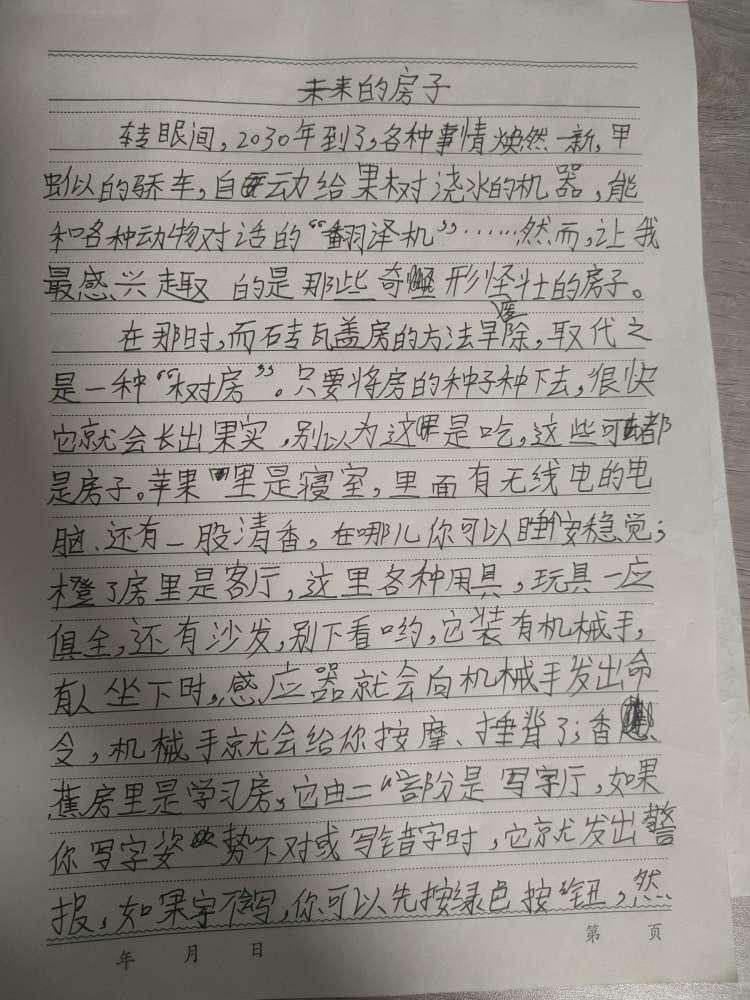 未来的房子
转眼间，2030年到了，各种事情焕然一新，甲
虫似的轿车，自动给果树浇水的机器，能
和各种动物对话的“翻译机”……然而，让我
最感兴趣的是那些奇形怪壮的房子。
在那时，而砖瓦盖房的方法早废除，取代之
是一种“树房”。只要将房的种子种下去，很快
它就会长出果实，别以为这果是吃，这些可都
是房子。苹果里是寝室，里面有无线电的电
脑、还有一股清香，在哪儿你可以睡安稳觉；
橙了房里是客厅，这里各种用具，玩具一应
俱全，还有沙发，别下看哟，它装有机械手，
有人坐下时，感应器就会向机械手发出命
令，机械手就会给你按摩、捶背了；香
蕉房里是学习房，它由二部分是写字厅，如果
你写字姿势不对或写错字时，它就发出警
报，如果字不会写，你可以先按绿色按钮，然
年 月 日
第 页